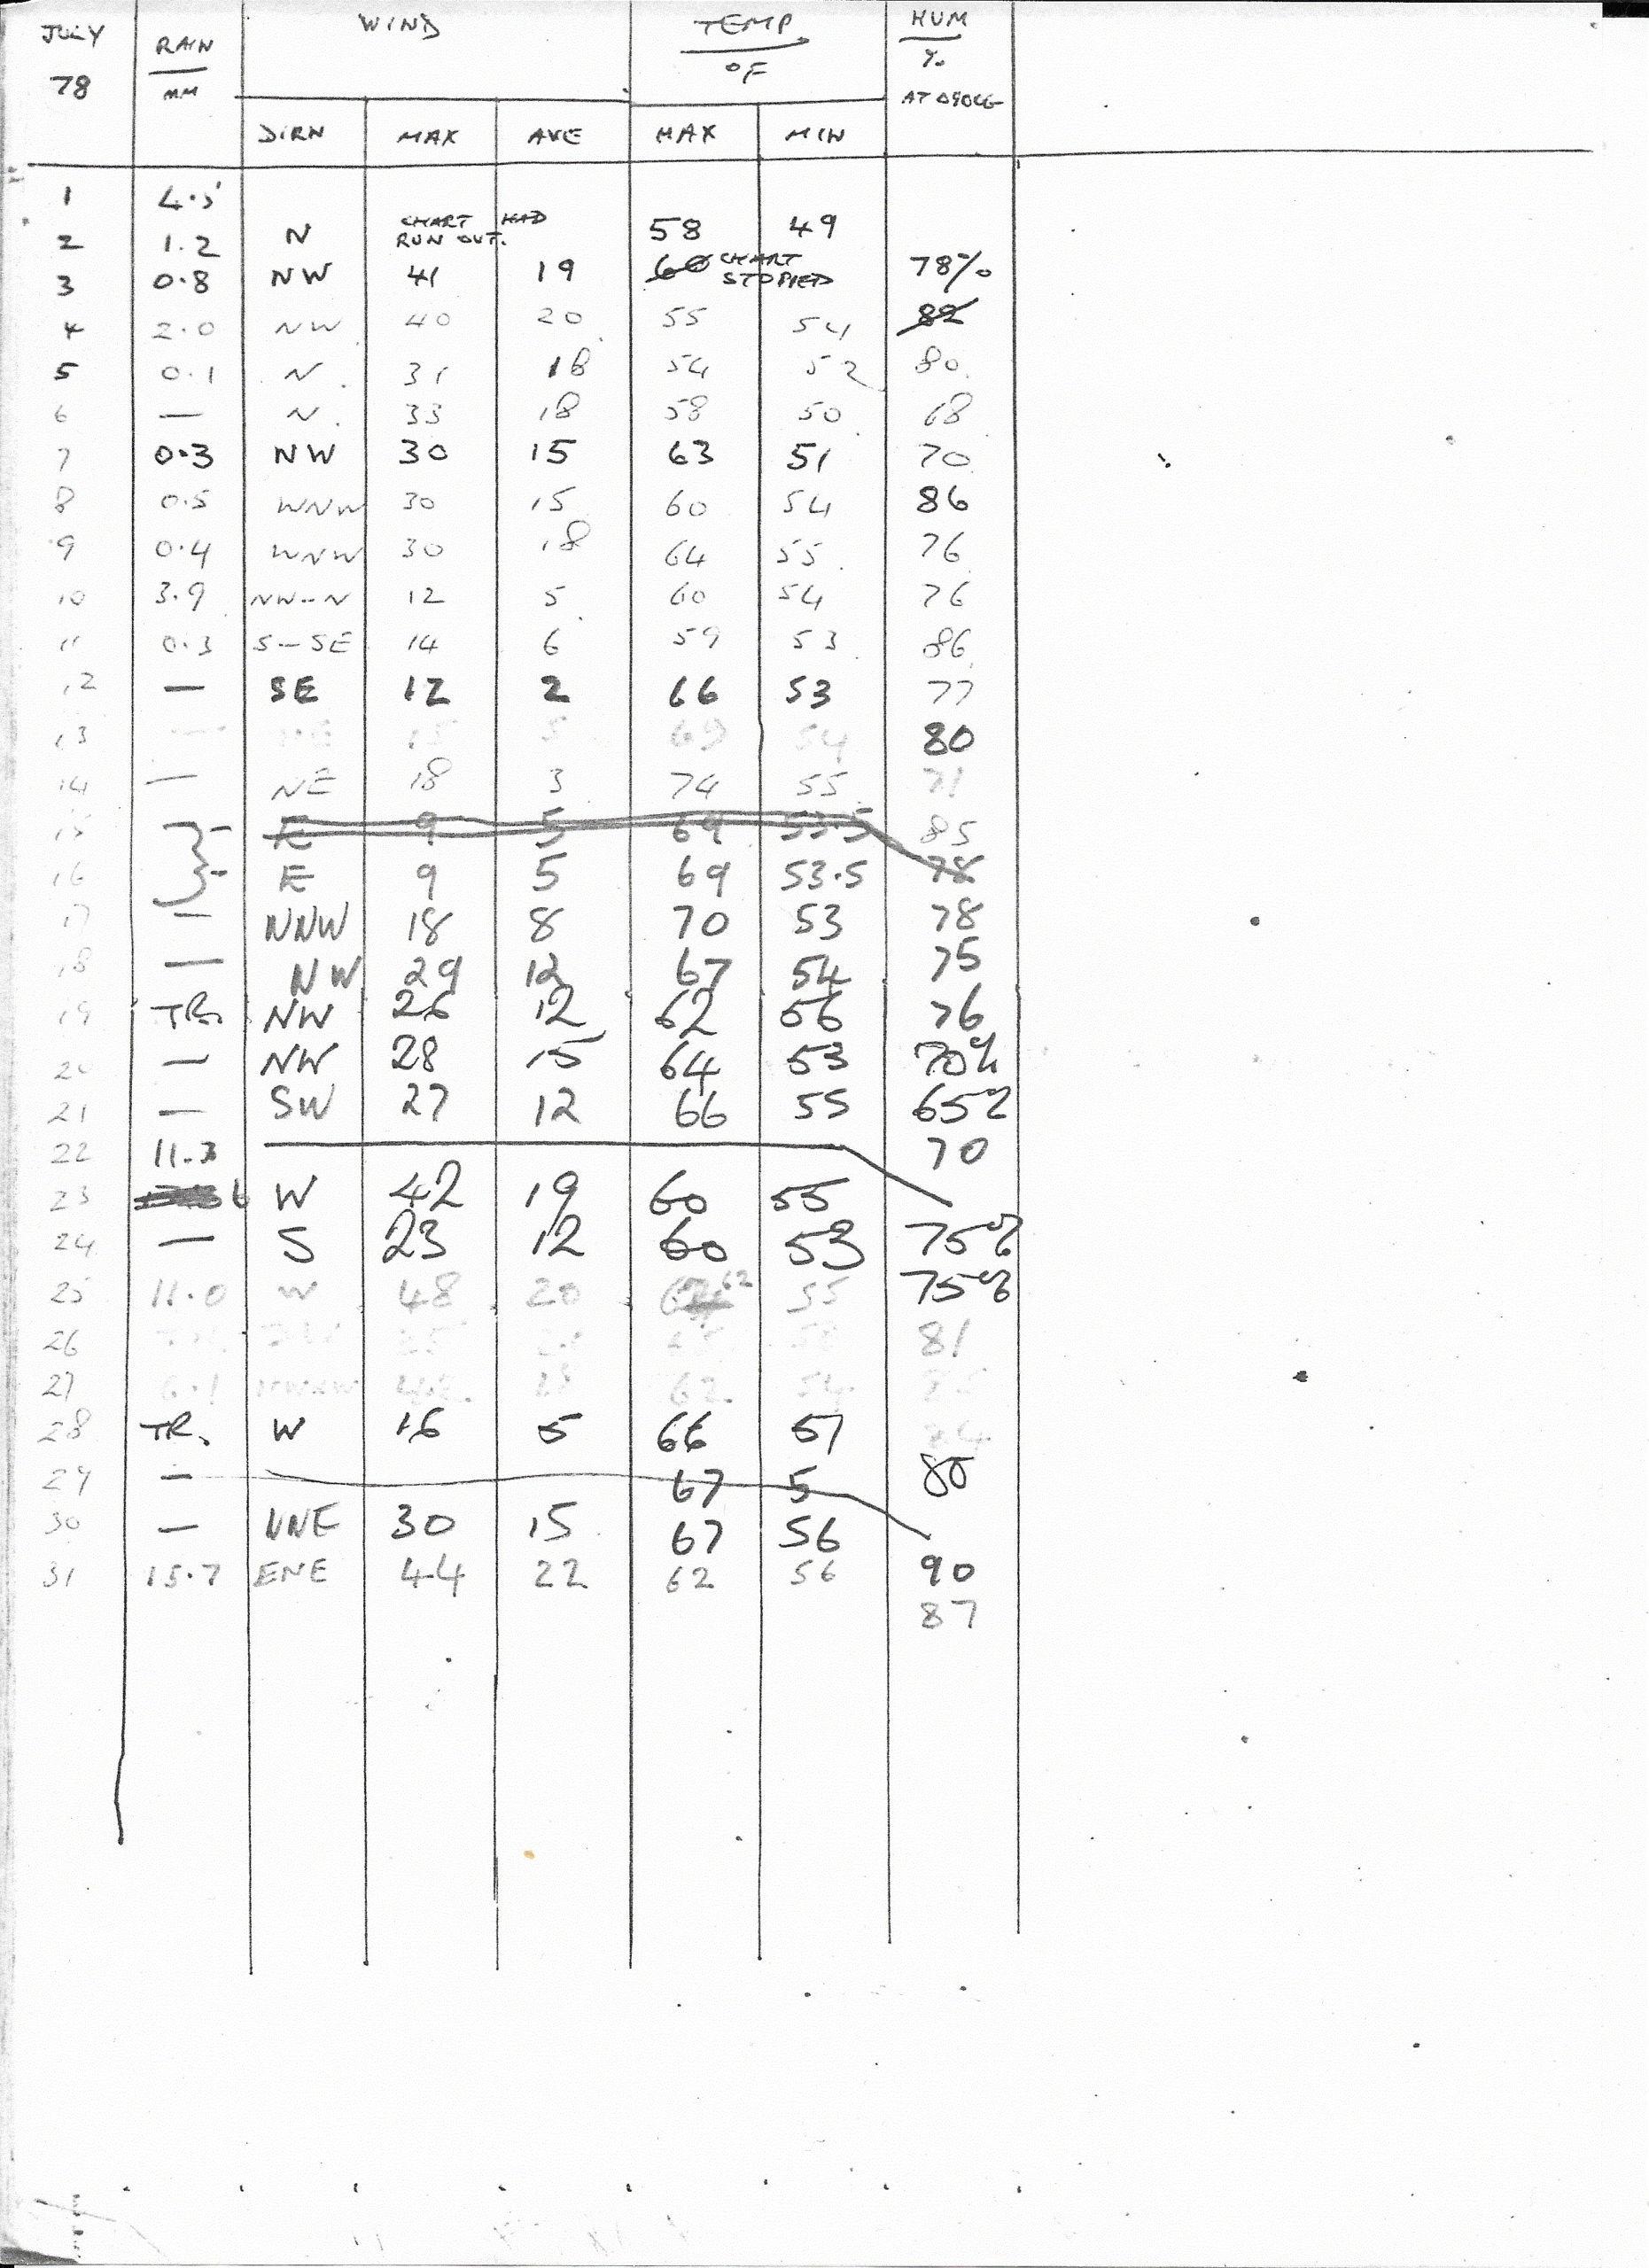 JULY RAIN WIND TEMP. HUM
78 MM °F %
AT 0900G
DIRN MAX AVE MAX MIN
1 4.5
2 1.2 N CHART HAD RUN OUT. 58 49
3 0.8 NW 41 19 60 CHART STOPPED 78%
4 2.0 NW 40 20 55 54 82
5 0.1 N 31 18 54 52 80
6 — N 33 18 58 50 68
7 0.3 NW 30 15 63 51 70
8 0.5 WNW 30 15 60 54 86
9 0.4 WNW 30 18 64 55 76
10 3.9 NW--N 12 5 60 54 76
11 0.3 S-SE 14 6 59 53 86
12 — SE 12 2 66 53 77
13 — 5 69 54 80
14 — NE 18 3 74 55 71
15 - E 9 5 69 53.5 85
16 - E 9 5 69 53.5 78
17 — NNW 18 8 70 53 78
18 — NW 29 12 67 54 75
19 TR. NW 26 12 62 56 76
20 — NW 28 15 64 53 70%
21 — SW 27 12 66 55 65%
22 11.3 70
23 6 W 42 19 60 55
24 — S 23 12 60 53 75%
25 11.0 W 48 20 62 55 75%
26 81
27 62 54
28 TR. W 16 5 66 51
29 — 67 5 80
30 — NNE 30 15 67 56
31 15.7 ENE 44 22 62 56 90
87